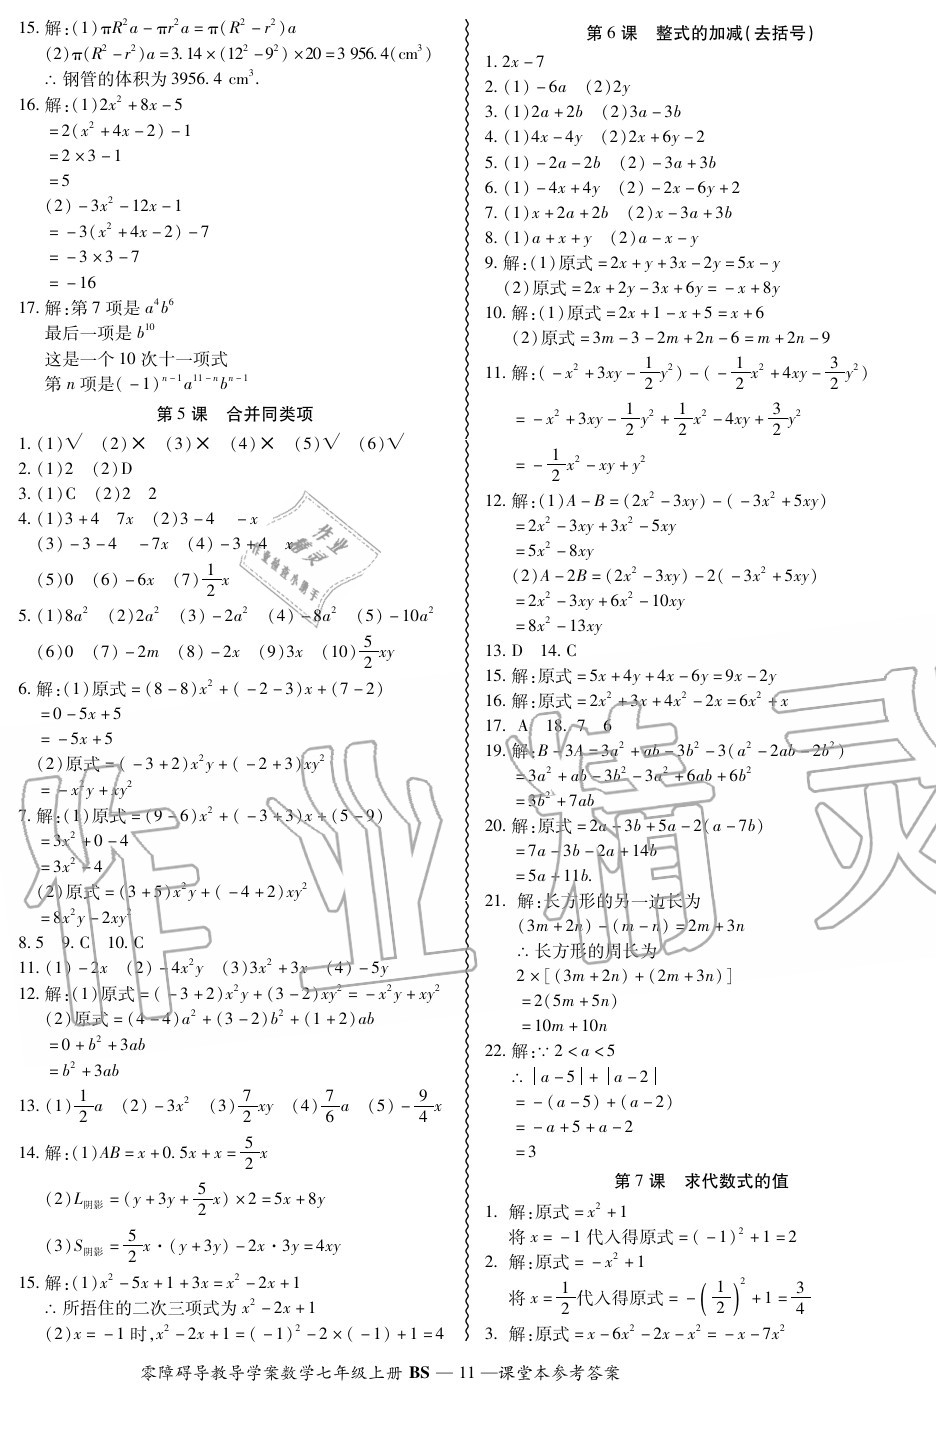 15. 解:(1)πR²a－πr²a＝π(R²－r²)a
(2)π(R²－r²)a＝3.14×(12²－9²)×20＝3 956.4(cm³)
∴ 钢管的体积为 3956.4 cm³.
16. 解:(1)2x²＋8x－5
＝2(x²＋4x－2)－1
＝2×3－1
＝5
(2)－3x²－12x－1
＝－3(x²＋4x－2)－7
＝－3×3－7
＝－16
17. 解:第 7 项是 a⁴b⁶
最后一项是 b¹⁰
这是一个 10 次十一项式
第 n 项是(－1)ⁿ⁻¹a¹¹⁻ⁿbⁿ⁻¹
第 5 课 合并同类项
1. (1)√ (2)× (3)× (4)× (5)√ (6)√
2. (1)2 (2)D
3. (1)C (2)2 2
4. (1)3＋4 7x (2)3－4 －x
(3)－3－4 －7x (4)－3＋4 x
(5)0 (6)－6x (7)1/2x
5. (1)8a² (2)2a² (3)－2a² (4)－8a² (5)－10a²
(6)0 (7)－2m (8)－2x (9)3x (10)5/2xy
6. 解:(1)原式＝(8－8)x²＋(－2－3)x＋(7－2)
＝0－5x＋5
＝－5x＋5
(2)原式＝(－3＋2)x²y＋(－2＋3)xy²
＝－x²y＋xy²
7. 解:(1)原式＝(9－6)x²＋(－3＋3)x＋(5－9)
＝3x²＋0－4
＝3x²－4
(2)原式＝(3＋5)x²y＋(－4＋2)xy²
＝8x²y－2xy²
8. 5 9. C 10. C
11. (1)－2x (2)－4x²y (3)3x²＋3x (4)－5y
12. 解:(1)原式＝(－3＋2)x²y＋(3－2)xy²＝－x²y＋xy²
(2)原式＝(4－4)a²＋(3－2)b²＋(1＋2)ab
＝0＋b²＋3ab
＝b²＋3ab
13. (1)1/2a (2)－3x² (3)7/2xy (4)7/6a (5)－9/4x
14. 解:(1)AB＝x＋0.5x＋x＝5/2x
(2)L阴影＝(y＋3y＋5/2x)×2＝5x＋8y
(3)S阴影＝5/2x·(y＋3y)－2x·3y＝4xy
15. 解:(1)x²－5x＋1＋3x＝x²－2x＋1
∴ 所捂住的二次三项式为 x²－2x＋1
(2)x＝－1 时,x²－2x＋1＝(－1)²－2×(－1)＋1＝4
第 6 课 整式的加减(去括号)
1. 2x－7
2. (1)－6a (2)2y
3. (1)2a＋2b (2)3a－3b
4. (1)4x－4y (2)2x＋6y－2
5. (1)－2a－2b (2)－3a＋3b
6. (1)－4x＋4y (2)－2x－6y＋2
7. (1)x＋2a＋2b (2)x－3a＋3b
8. (1)a＋x＋y (2)a－x－y
9. 解:(1)原式＝2x＋y＋3x－2y＝5x－y
(2)原式＝2x＋2y－3x＋6y＝－x＋8y
10. 解:(1)原式＝2x＋1－x＋5＝x＋6
(2)原式＝3m－3－2m＋2n－6＝m＋2n－9
11. 解:(－x²＋3xy－1/2y²)－(－1/2x²＋4xy－3/2y²)
＝－x²＋3xy－1/2y²＋1/2x²－4xy＋3/2y²
＝－1/2x²－xy＋y²
12. 解:(1)A－B＝(2x²－3xy)－(－3x²＋5xy)
＝2x²－3xy＋3x²－5xy
＝5x²－8xy
(2)A－2B＝(2x²－3xy)－2(－3x²＋5xy)
＝2x²－3xy＋6x²－10xy
＝8x²－13xy
13. D 14. C
15. 解:原式＝5x＋4y＋4x－6y＝9x－2y
16. 解:原式＝2x²＋3x＋4x²－2x＝6x²＋x
17. A 18. 7 6
19. 解:B－3A＝3a²＋ab－3b²－3(a²－2ab－2b²)
＝3a²＋ab－3b²－3a²＋6ab＋6b²
＝3b²＋7ab
20. 解:原式＝2a－3b＋5a－2(a－7b)
＝7a－3b－2a＋14b
＝5a＋11b.
21. 解:长方形的另一边长为
(3m＋2n)－(m－n)＝2m＋3n
∴ 长方形的周长为
2×[(3m＋2n)＋(2m＋3n)]
＝2(5m＋5n)
＝10m＋10n
22. 解:∵ 2＜a＜5
∴ |a－5|＋|a－2|
＝－(a－5)＋(a－2)
＝－a＋5＋a－2
＝3
第 7 课 求代数式的值
1. 解:原式＝x²＋1
将 x＝－1 代入得原式＝(－1)²＋1＝2
2. 解:原式＝－x²＋1
将 x＝1/2代入得原式＝－(1/2)²＋1＝3/4
3. 解:原式＝x－6x²－2x－x²＝－x－7x²
零障碍导教导学案数学七年级上册 BS — 11 —课堂本参考答案
作业精灵
作业检查小助手
作业精灵